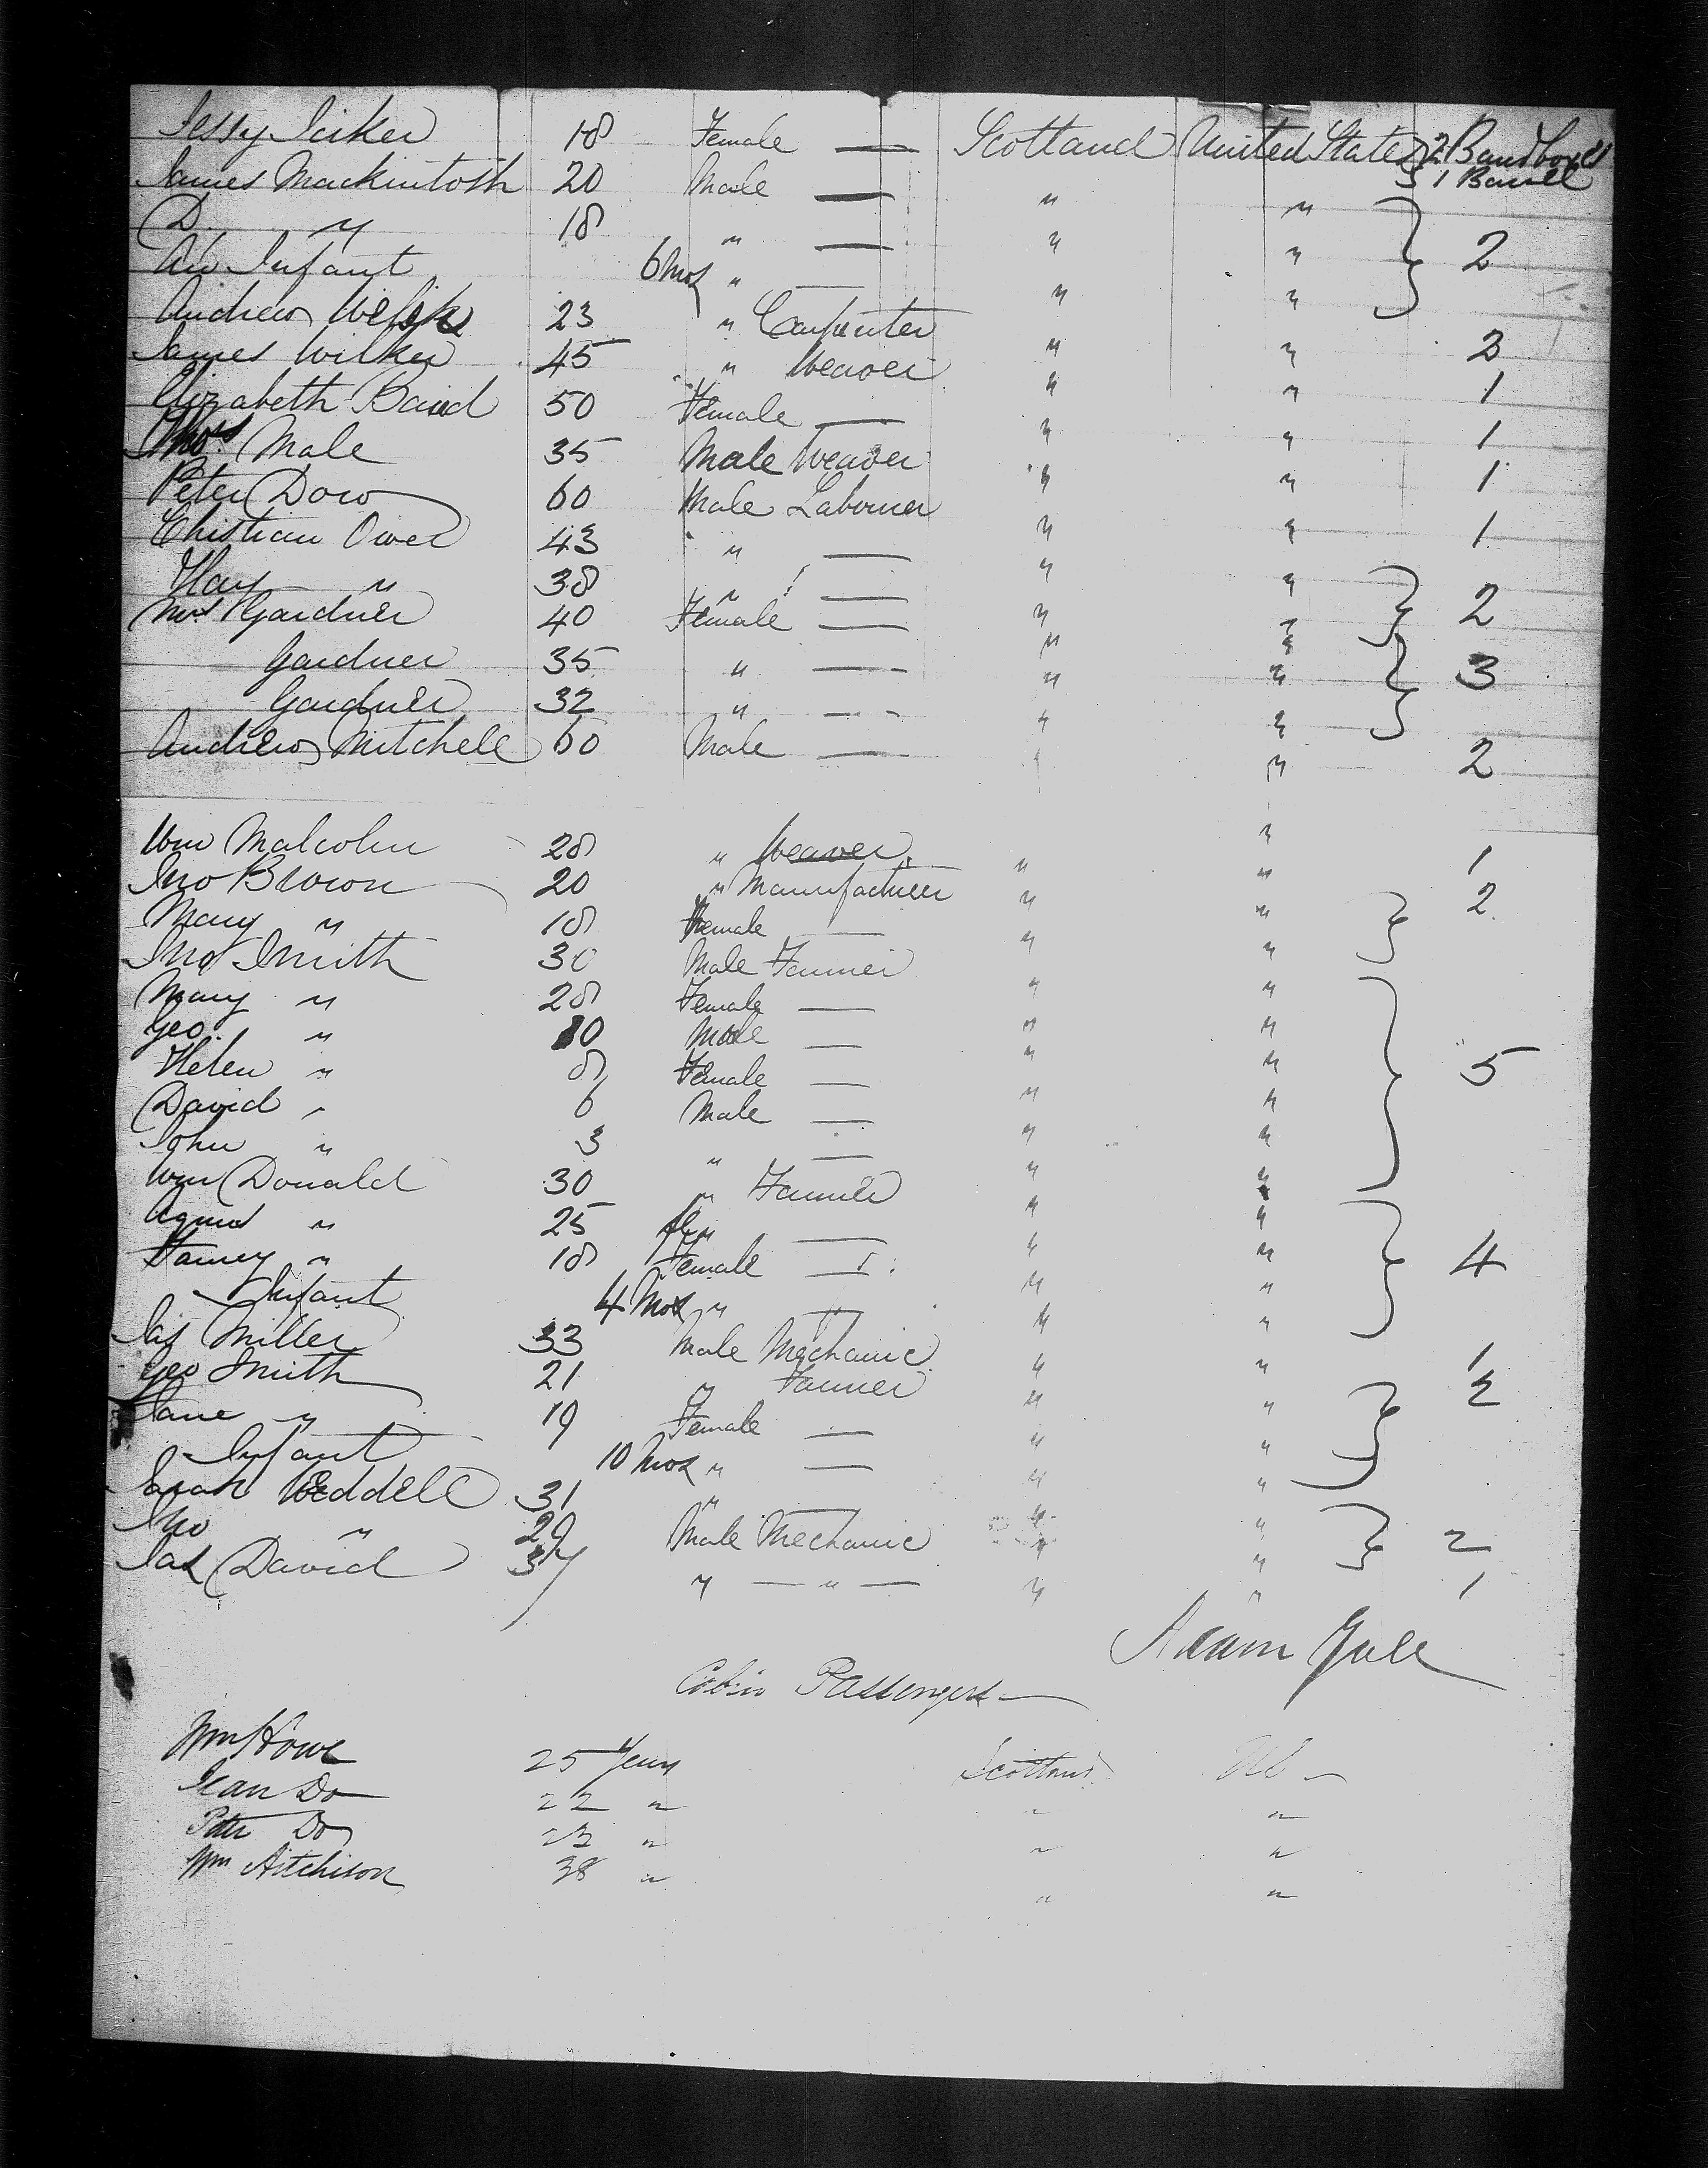 Jessy Iciker 18 Female — Scotland United States 2 Bandboxes
James Mackintosh 20 Male — " " 1 Barrell
D. " 18 " — " " 2
An Infant 6 Mos " — " "
Andrew 23 " Carpenter " " 2
James Wilkie 45 " Weaver " " 1
Elizabeth Baird 50 Female — " " 1
Thos. Male 35 Male Weaver " " 1
Peter Dow 60 Male Laborer " " 1
Christian Ower 43 " — " "
Hay " 38 " — " " 2
Mrs Gardner 40 Female — " "
Gardner 35 " — " " 3
Gardner 32 " — " "
Andrew Mitchell 60 Male — " " 2
Wm Malcolm 28 " Weaver " " 1
Jno Brown 20 " Manufacturer " " 2
Mary " 18 Female — " "
Jno Smith 30 Male Farmer " "
Mary " 28 Female — " "
Geo. " 10 Male — " "
Helen " 8 Female — " " 5
David " 6 Male — " "
John " 3 " — " "
Wm Donald 30 " Farmer " "
Agnes " 25 — " "
" 18 Female — " " 4
Infant 4 Mos " — " "
Jas Miller 33 Male Mechanic " " 1
Geo Smith 21 " Farmer " " 2
Jane " 19 Female — " "
Infant 10 Mos " — " "
Sarah Weddell 31 " — " "
Jno " 29 Male Mechanic " " 2
Jas David 37 " — " — " " 1
Adam Yule
Cabin Passengers —
Wm Howe 25 Years Scotland US —
Jean Do 22 " " "
Peter Do 23 " " "
Wm Aitchison 38 " " "